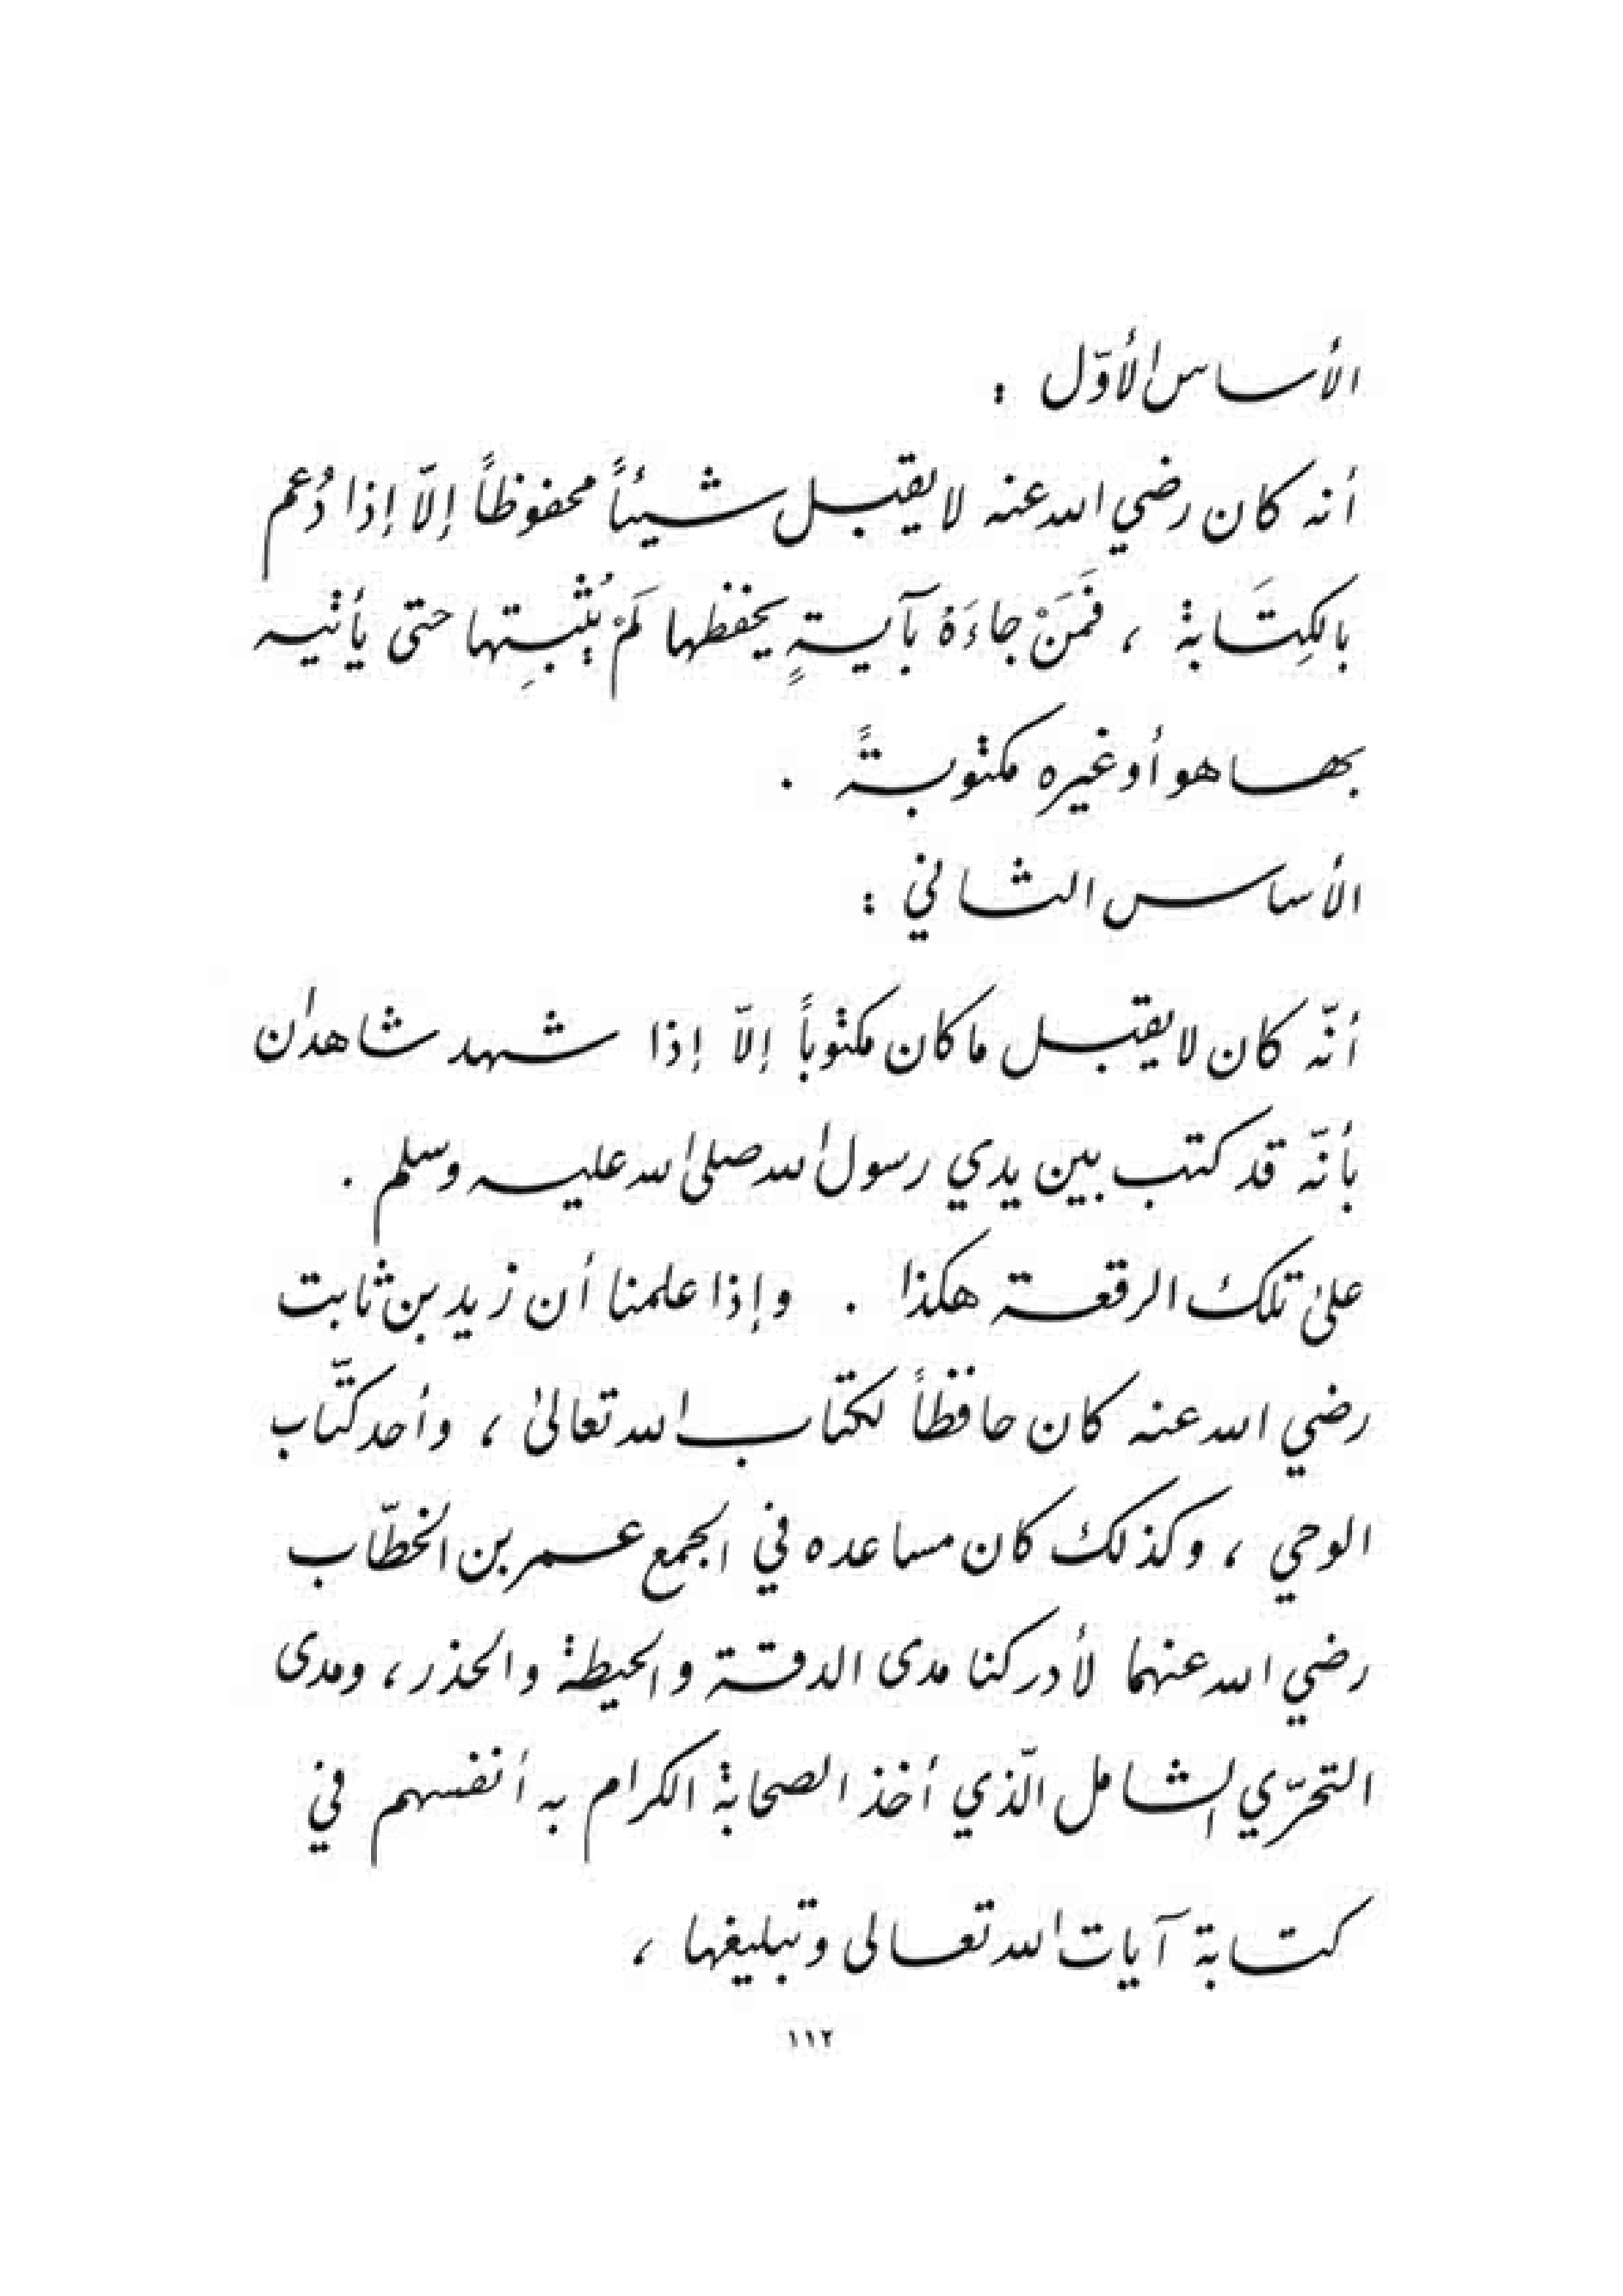 الأساس الأوّل :
أنه كان رضي الله عنه لا يقبل شيئاً محفوظاً إلاّ إذا دُعم
بالكِتَابة ، فمَنْ جاءَهُ بآيةٍ يحفظها لَمْ يُثبِتها حتى يأتيه
بها هو أو غيره مكتوبةً .
الأساس الثاني :
أنّه كان لا يقبل ما كان مكتوباً إلاّ إذا شهد شاهدان
بأنّه قد كتب بين يدي رسول الله صلى الله عليه وسلم .
على تلك الرقعة هكذا . وإذا علمنا أن زيد بن ثابت
رضي الله عنه كان حافظاً لكتاب الله تعالى ، وأحد كتّاب
الوحي ، وكذلك كان مساعده في الجمع عمر بن الخطّاب
رضي الله عنهما لأدركنا مدى الدقة والحيطة والحذر ، ومدى
التحرّي الشامل الّذي أخذ الصحابة الكرام به أنفسهم في
كتابة آيات الله تعالى وتبليغها ،
١١٢